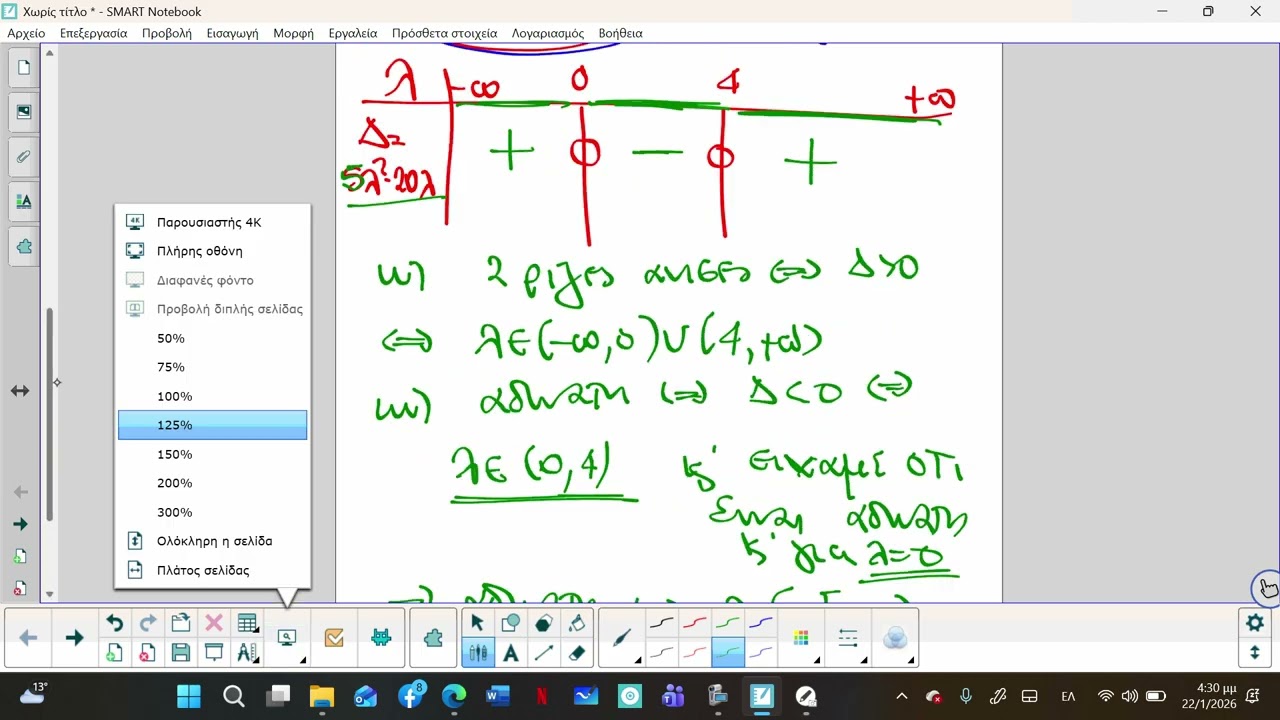 Χωρίς τίτλο * - SMART Notebook
Αρχείο Επεξεργασία Προβολή Εισαγωγή Μορφή Εργαλεία Πρόσθετα στοιχεία Λογαριασμός Βοήθεια
λ -∞ 0 4 +∞
Δ=
5λ²-20λ
+ 0 - 0 +
2 ριζες ανισες ⇔ Δ>0
⇔ λ∈(-∞,0)∪(4,+∞)
αδυνατη ⇔ Δ<0 ⇔
λ∈(0,4) κ' ειχαμε οτι
ειναι αδυνατη
κ' για λ=0
Παρουσιαστής 4K
Πλήρης οθόνη
Διαφανές φόντο
Προβολή διπλής σελίδας
50%
75%
100%
125%
150%
200%
300%
Ολόκληρη η σελίδα
Πλάτος σελίδας
13°
8
ΕΛ
4:30 μμ
22/1/2026